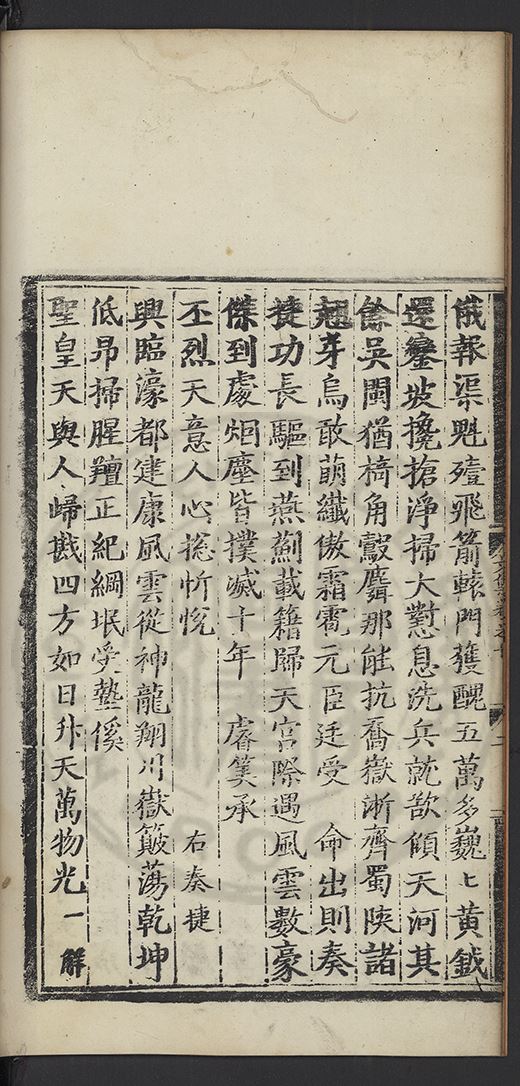 俄報渠魁殪飛箭轅門獲醜五萬多巍〻黃鉞
還鑾坡攙搶淨掃大憝息洗兵就歃傾天河其
餘吳閩猶掎角鷇麛那能抗喬嶽浙齊蜀陝諸
翹芽烏敢萌纖傲霜雹元臣廷受 命出則奏
捷功長驅到燕薊載籍歸天官際遇風雲數豪
傑到處烟塵皆撲滅十年 睿筭承
丕烈天意人心揔忻悅 右奏捷
興臨濠都建康風雲從神龍翔川嶽簸蕩乾坤
低昻掃腥羶正紀綱垊受墊徯
聖皇天與人歸戡四方如日升天萬物光一解